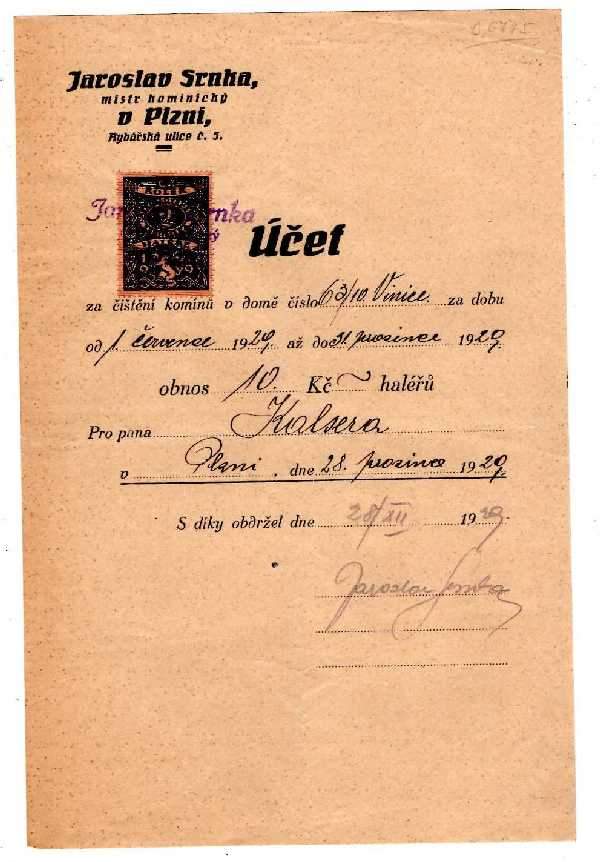 Jaroslav Srnka,
mistr kominický
v Plzni,
Rybářská ulice č. 5.
Účet
za čištění komínů v domě číslo 63/10. Vinice. za dobu
od 1. července 1929 až do 31. prosince 1929
obnos 10. Kč haléřů
Pro pana Kalsera
v Plzni . dne 28. prosince 1929
S díky obdržel dne 28/XII 1929
Jaroslav Srnka